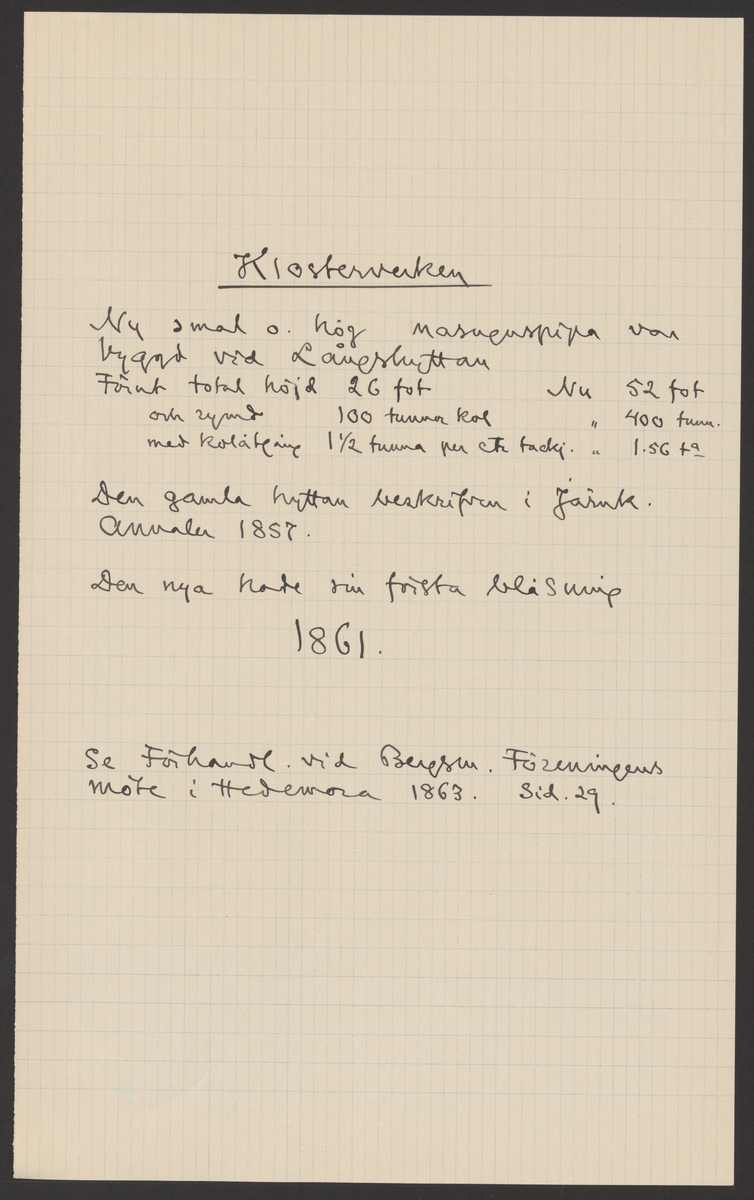 Klosterverken
Ny smal o. hög masugnspipa var
byggd vid Långshyttan
Förut total höjd 26 fot Nu 52 fot
och rymd 100 tunnor kol " 400 tunn.
med kolåtgång 1½ tunna per ctr tackj. " 1.56 ta
Den gamla hyttan beskrifven i Järnk.
Annaler 1857.
Den nya hade sin första blåsning
1861.
Se Förhandl. vid Bergsm. Föreningens
möte i Hedemora 1863. Sid. 29.